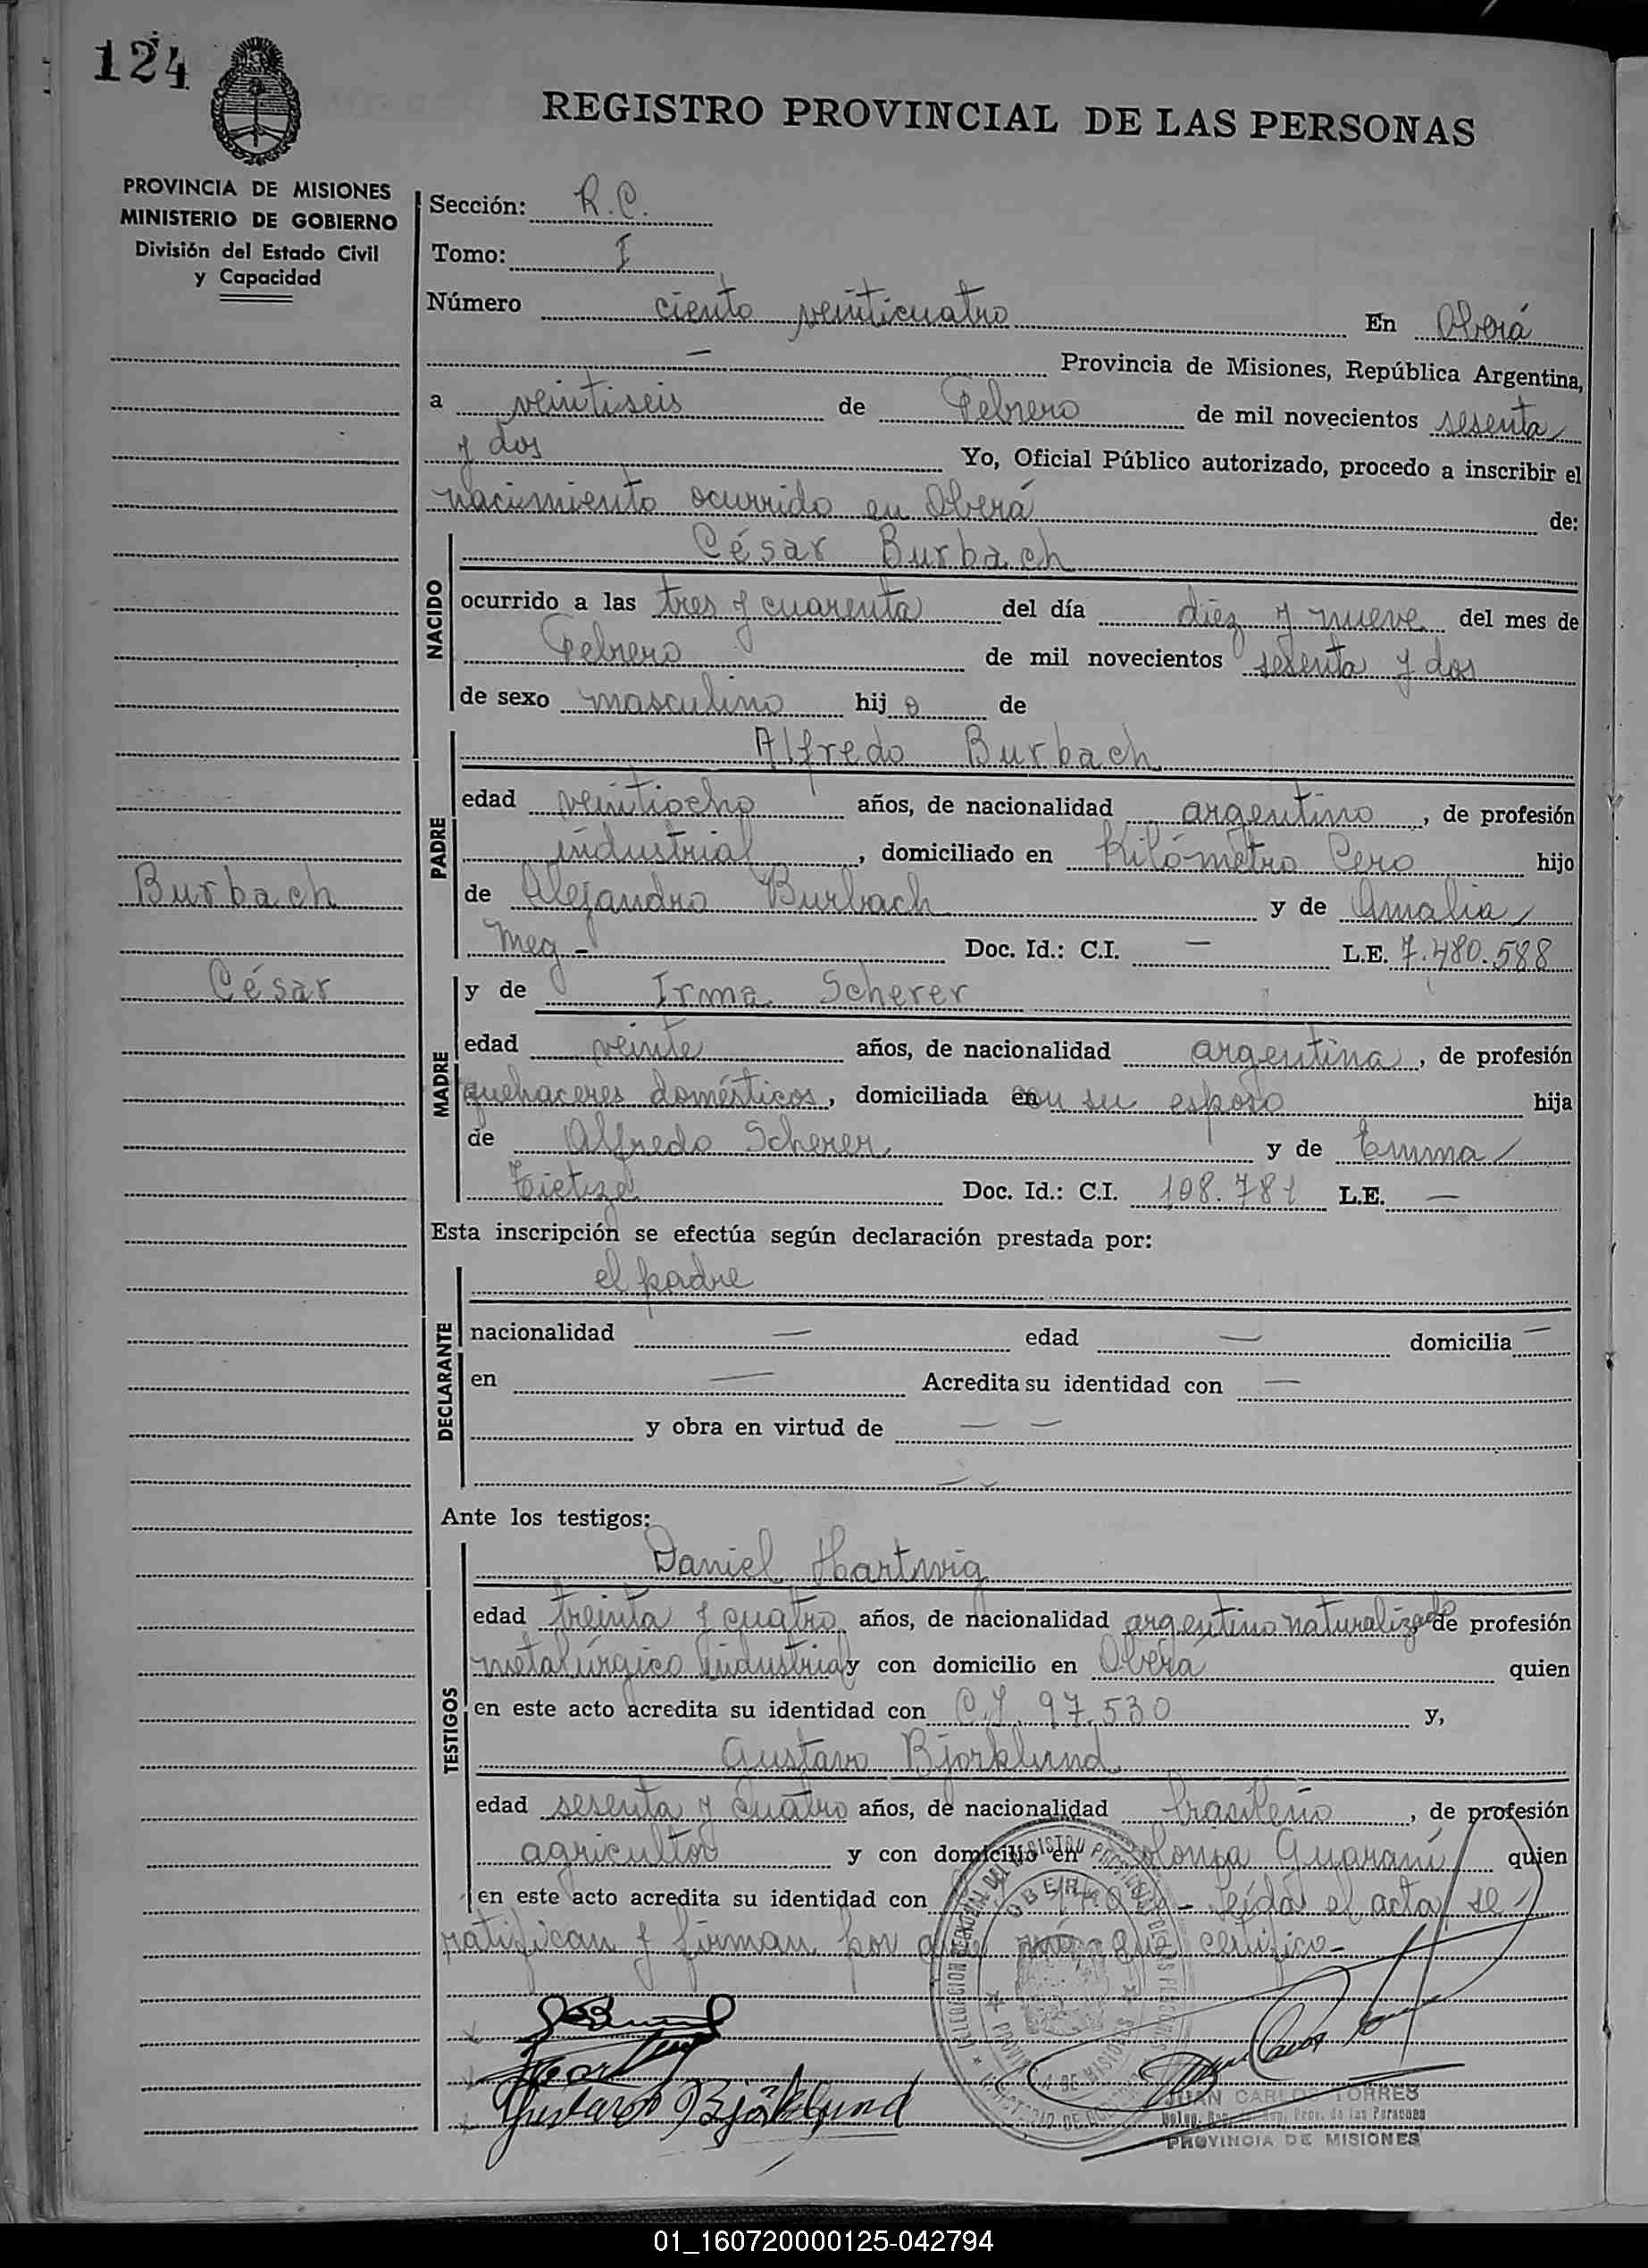 124
REGISTRO PROVINCIAL DE LAS PERSONAS
PROVINCIA DE MISIONES
MINISTERIO DE GOBIERNO
División del Estado Civil
y Capacidad
Sección: R.C.
Tomo: I
Número ciento veinticuatro En Oberá
— Provincia de Misiones, República Argentina,
a veintiseis de Febrero de mil novecientos sesenta
y dos Yo, Oficial Público autorizado, procedo a inscribir el
nacimiento ocurrido en Oberá de:
NACIDO
César Burbach
ocurrido a las tres y cuarenta del día diez y nueve del mes de
Febrero de mil novecientos sesenta y dos
de sexo masculino hijo de
PADRE
Alfredo Burbach
edad veintiocho años, de nacionalidad argentino, de profesión
industrial, domiciliado en Kilómetro Cero hijo
Burbach
de Alejandro Burbach y de Amalia
Meg - Doc. Id.: C.I. — L.E. 7.480.588
César
MADRE
y de Irma Scherer
edad veinte años, de nacionalidad argentina, de profesión
quehaceres domésticos, domiciliada en con su esposo hija
de Alfredo Scherer y de Emma
Tietze Doc. Id.: C.I. 108.781 L.E. —
Esta inscripción se efectúa según declaración prestada por:
DECLARANTE
el padre
nacionalidad — edad — domicilia —
en — Acredita su identidad con —
y obra en virtud de — —
Ante los testigos:
TESTIGOS
Daniel Hartwig
edad treinta y cuatro años, de nacionalidad argentino naturalizado de profesión
metalúrgico industrial y con domicilio en Oberá quien
en este acto acredita su identidad con C.I. 97.530 y,
Gustavo Bjorklund
edad sesenta y cuatro años, de nacionalidad brasileño, de profesión
agricultor y con domicilio en Colonia Guaraní quien
en este acto acredita su identidad con - Leída el acta se
ratifican y firman por ante mí que certifico-
Gustavo Björklund
OBERA
JUAN CARLOS TORRES
Prov. de las Personas
PROVINCIA DE MISIONES
01_160720000125-042794